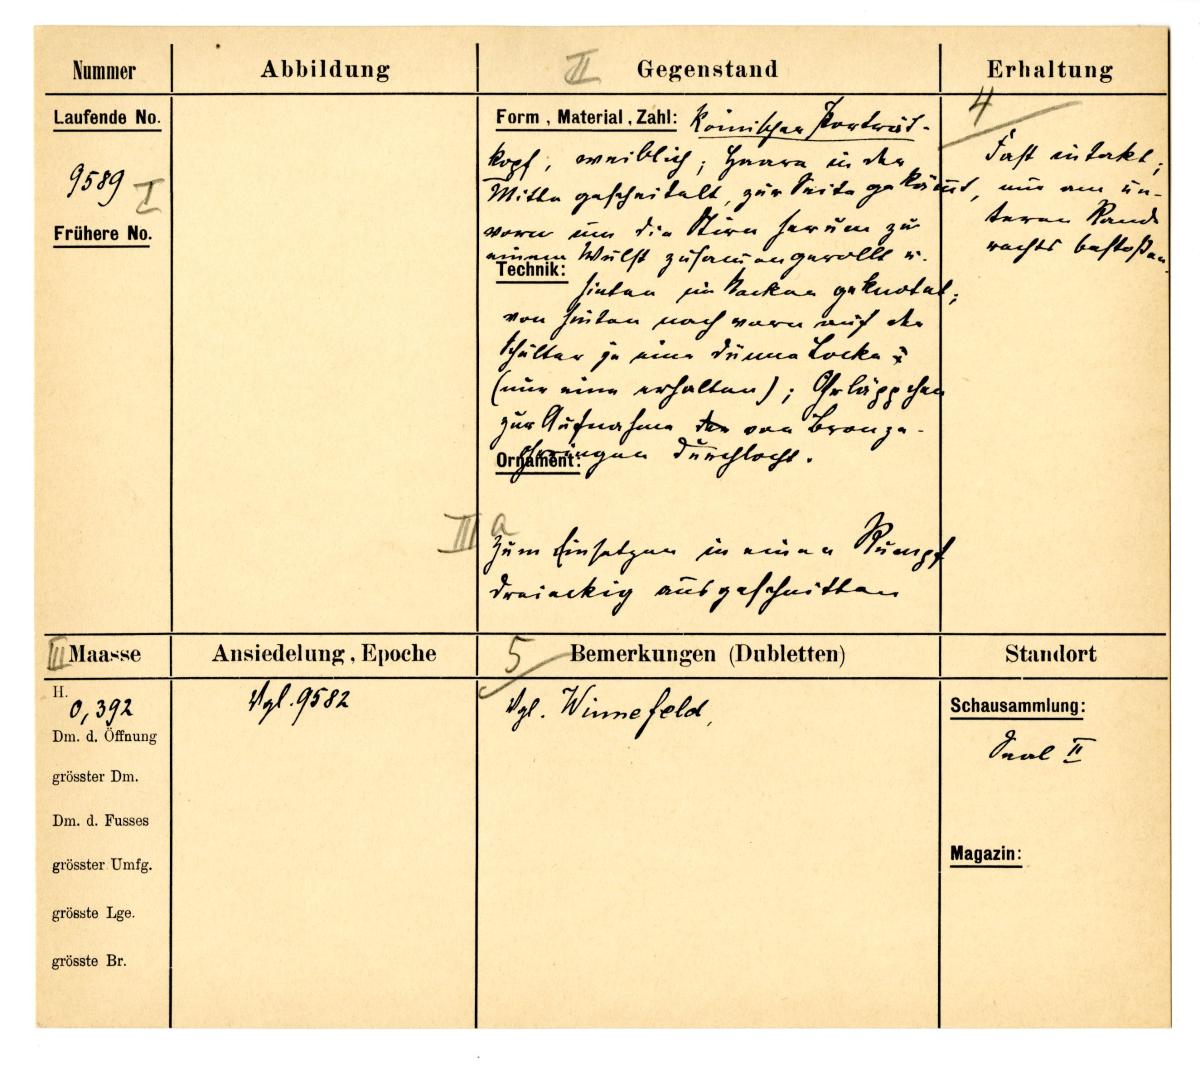 Nummer
Abbildung
II Gegenstand
Erhaltung
Laufende No.
9589 I
Frühere No.
Form, Material, Zahl: Römischer Porträt-
kopf, weiblich; Haare in der
Mitte gescheitelt, zur Seite gekämmt,
vorn um die Stirn herum zu
einem Wulst zusammengerollt u.
Technik:
hinten im Nacken geknotet;
von hinten nach vorn auf der
Schulter je eine dünne Locke
(nur eine erhalten); Ohrläppchen
zur Aufnahme von Bronze-
Ornament:
ohrringen durchlocht.
III a
Zum Einsetzen in einen Rumpf
dreieckig ausgeschnitten
4
Fast intakt;
nur am un-
teren Rand
rechts bestoßen.
III Maasse
Ansiedelung, Epoche
5 Bemerkungen (Dubletten)
Standort
H.
0,392
Dm. d. Öffnung
grösster Dm.
Dm. d. Fusses
grösster Umfg.
grösste Lge.
grösste Br.
Vgl. 9582
Vgl. Winnefeld,
Schausammlung:
Saal II
Magazin: